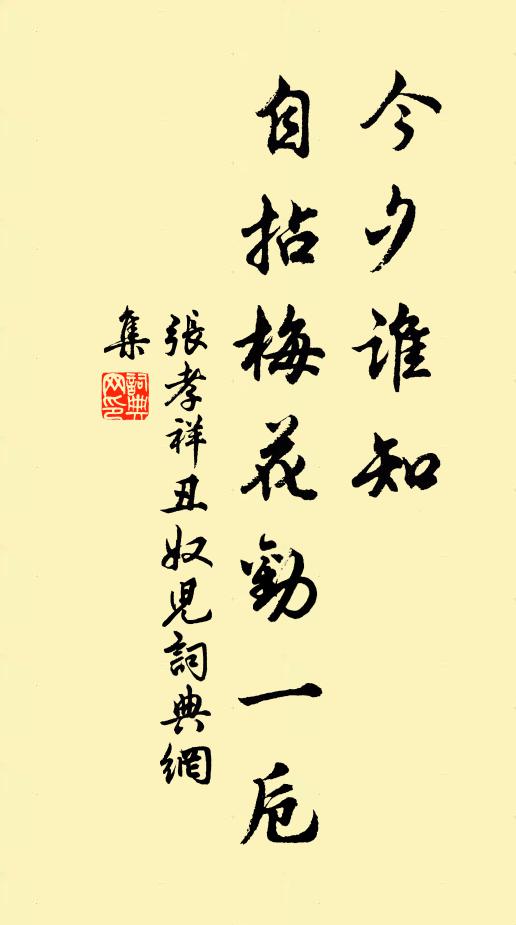 今夕谁知
自拈梅花劝一卮
張孝祥丑奴兒詞典網
集
詞典
网印